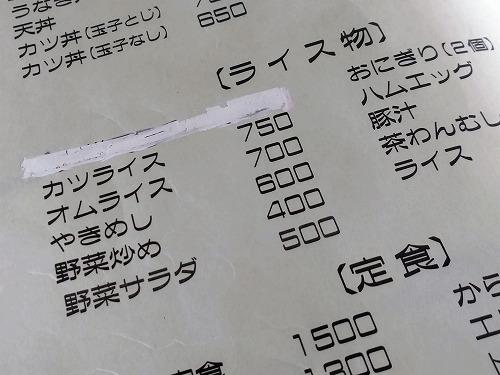 うなぎ
天丼
カツ丼(玉子とじ)
カツ丼(玉子なし) 650
〔ライス物〕
カツライス 750
オムライス 700
やきめし 600
野菜炒め 400
野菜サラダ 500
おにぎり(2個)
ハムエッグ
豚汁
茶わんむし
ライス
〔定食〕
1500
定食
から